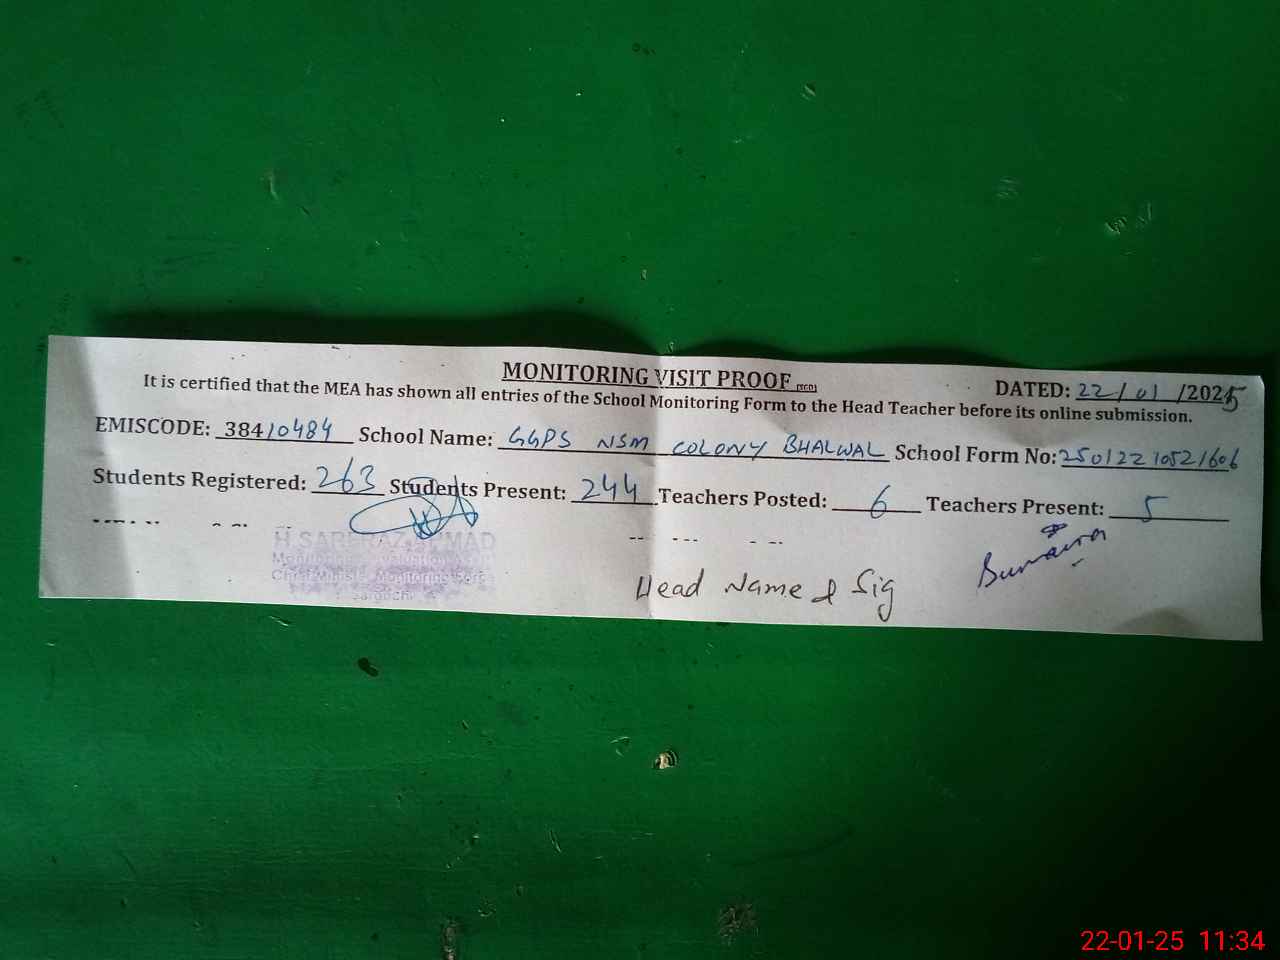 MONITORING VISIT PROOF (SCD)
DATED: 22/01/2025
It is certified that the MEA has shown all entries of the School Monitoring Form to the Head Teacher before its online submission.
EMISCODE: 38410484 School Name: GGPS NSM COLONY BHALWAL School Form No: 25012210521606
Students Registered: 263 Students Present: 244 Teachers Posted: 6 Teachers Present: 5
Monitoring Force
Head Name & Sig
22-01-25 11:34